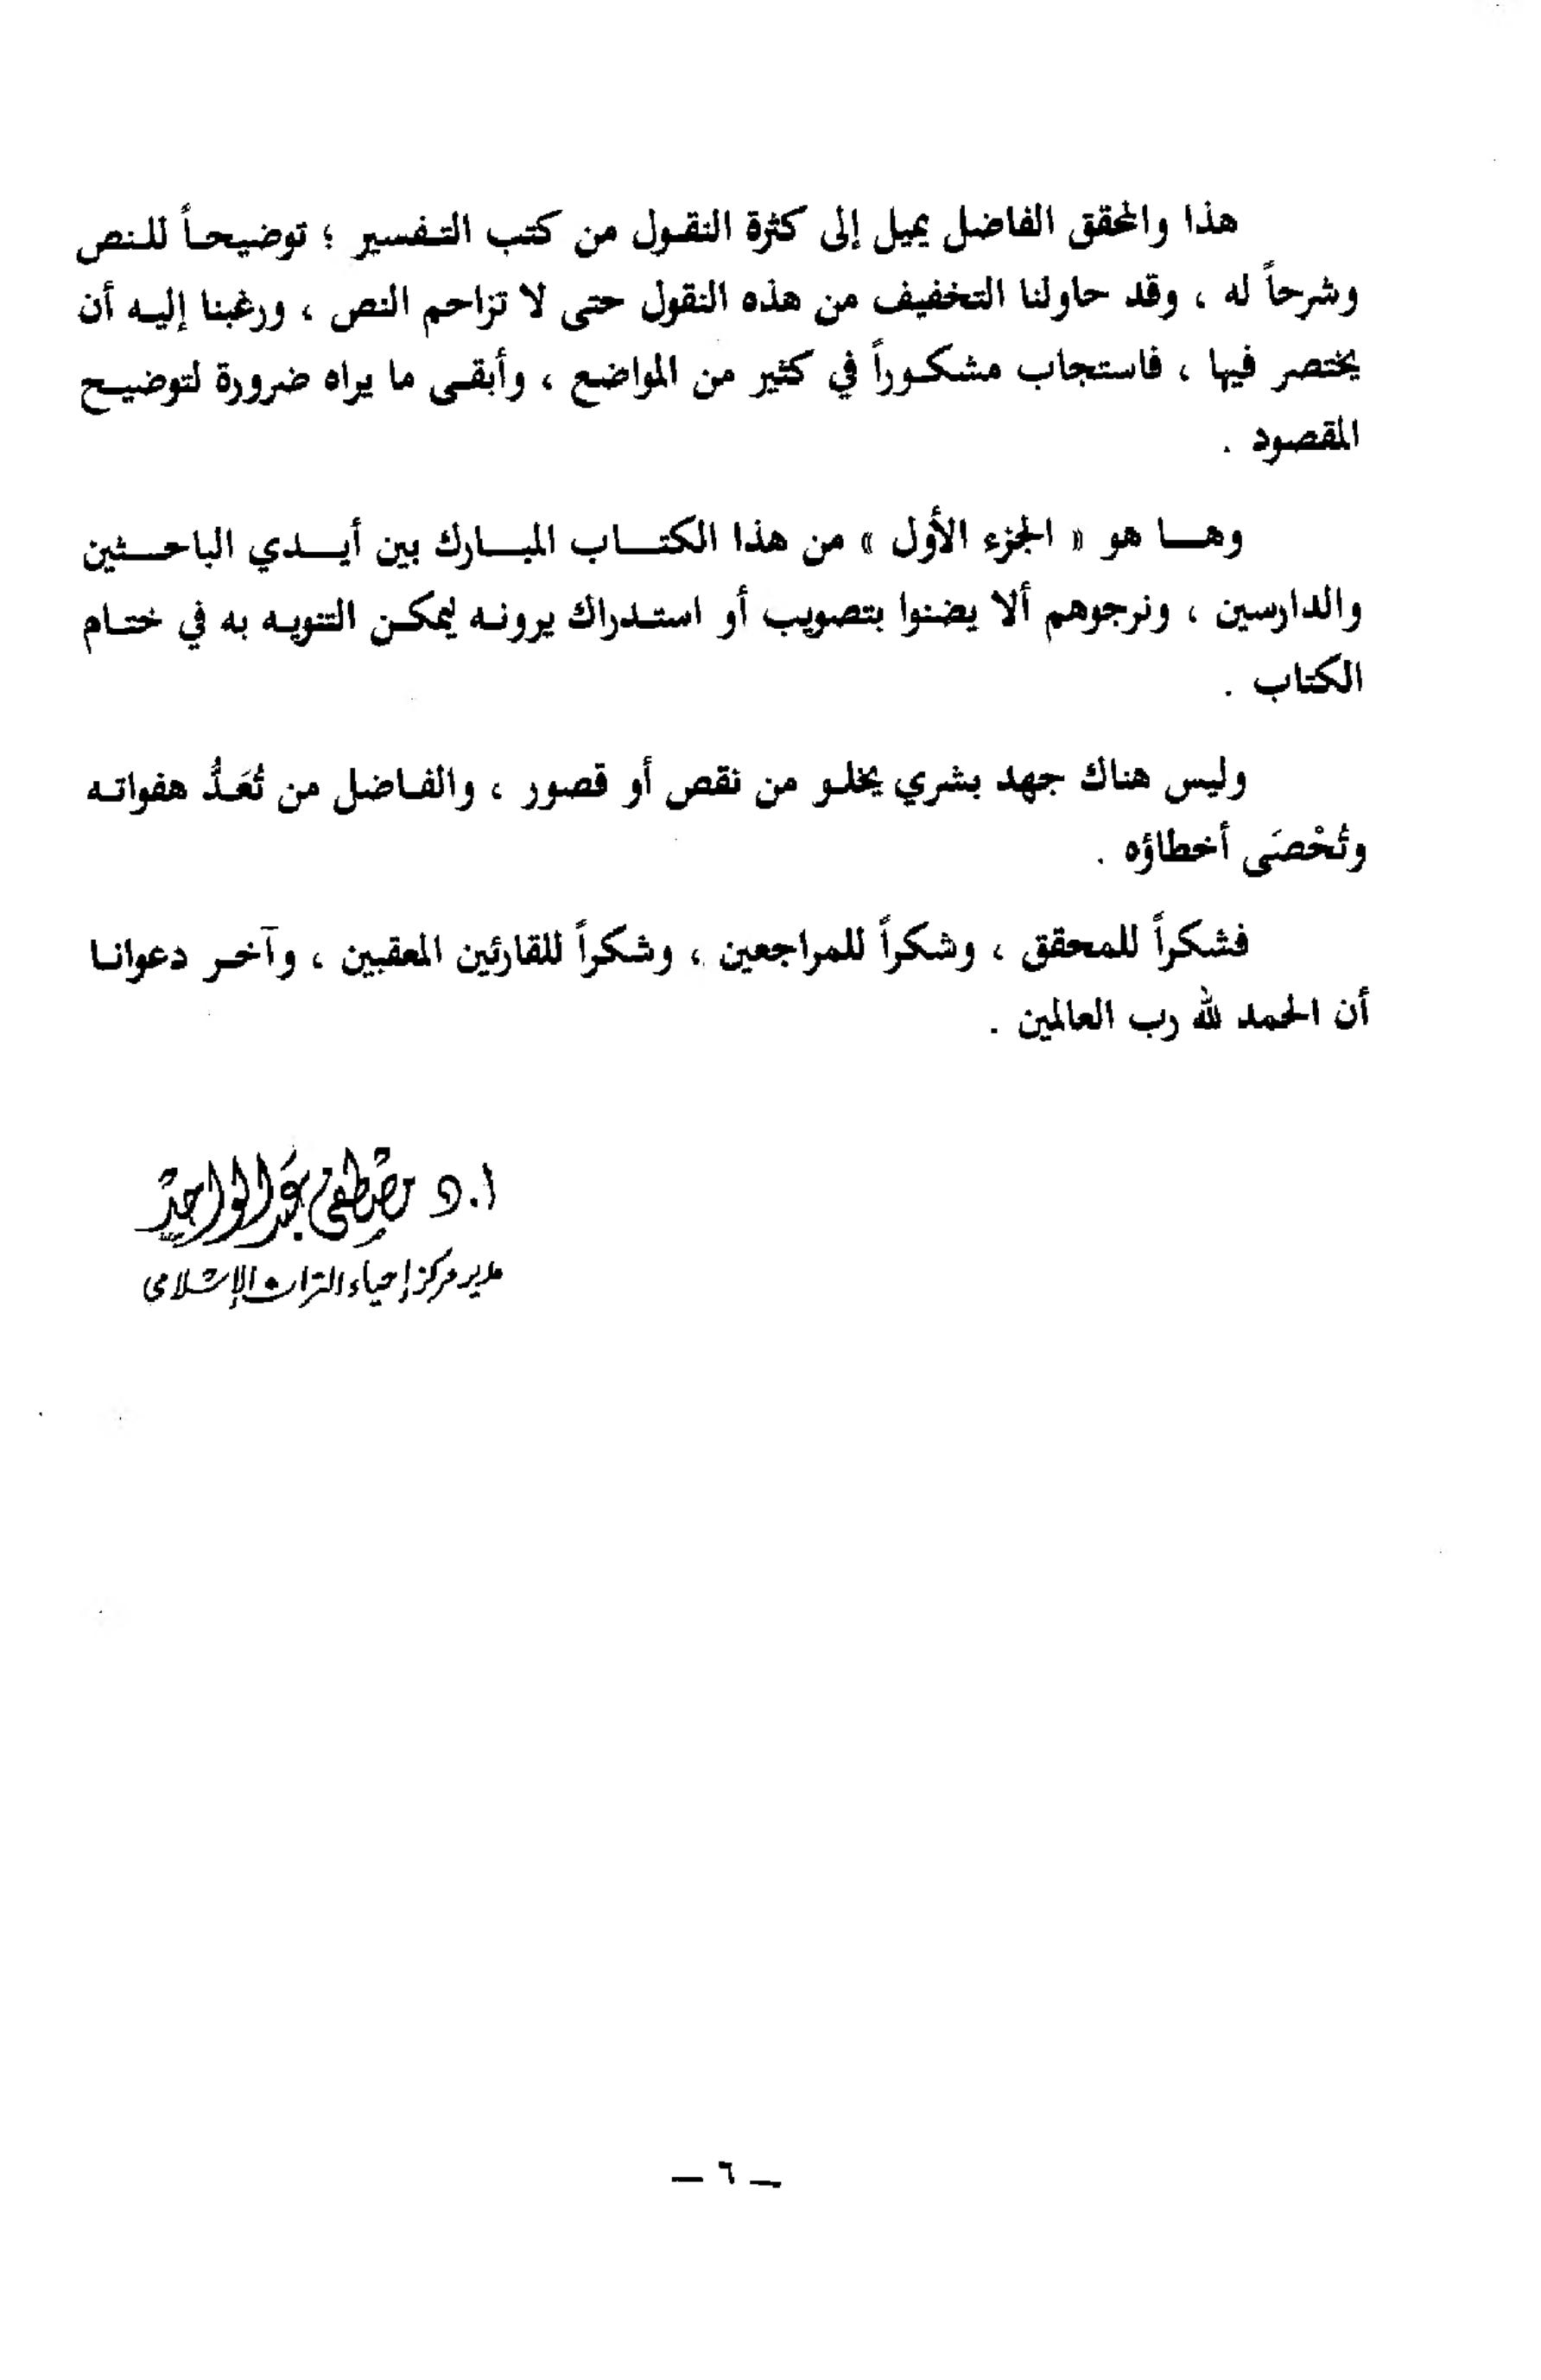 هذا والمحقق الفاضل يميل إلى كثرة النقول من كتب التفسير ؛ توضيحاً للنص
وشرحاً له ، وقد حاولنا التخفيف من هذه النقول حتى لا تزاحم النص ، ورغبنا إليه أن
يختصر فيها ، فاستجاب مشكوراً في كثير من المواضع ، وأبقى ما يراه ضرورة لتوضيح
المقصود .
وها هو « الجزء الأول » من هذا الكتاب المبارك بين أيدي الباحثين
والدارسين ، ونرجوهم ألا يضنوا بتصويب أو استدراك يرونه ليمكن التنويه به في ختام
الكتاب .
وليس هناك جهد بشري يخلو من نقص أو قصور ، والفاضل من تُعَدُّ هفواته
وتُحْصَى أخطاؤه .
فشكراً للمحقق ، وشكراً للمراجعين ، وشكراً للقارئين المعقبين ، وآخر دعوانا
أن الحمد لله رب العالمين .
ا.د مصطفى عبد الواحد
مدير مركز إحياء التراث الإسلامي
— ٦ —